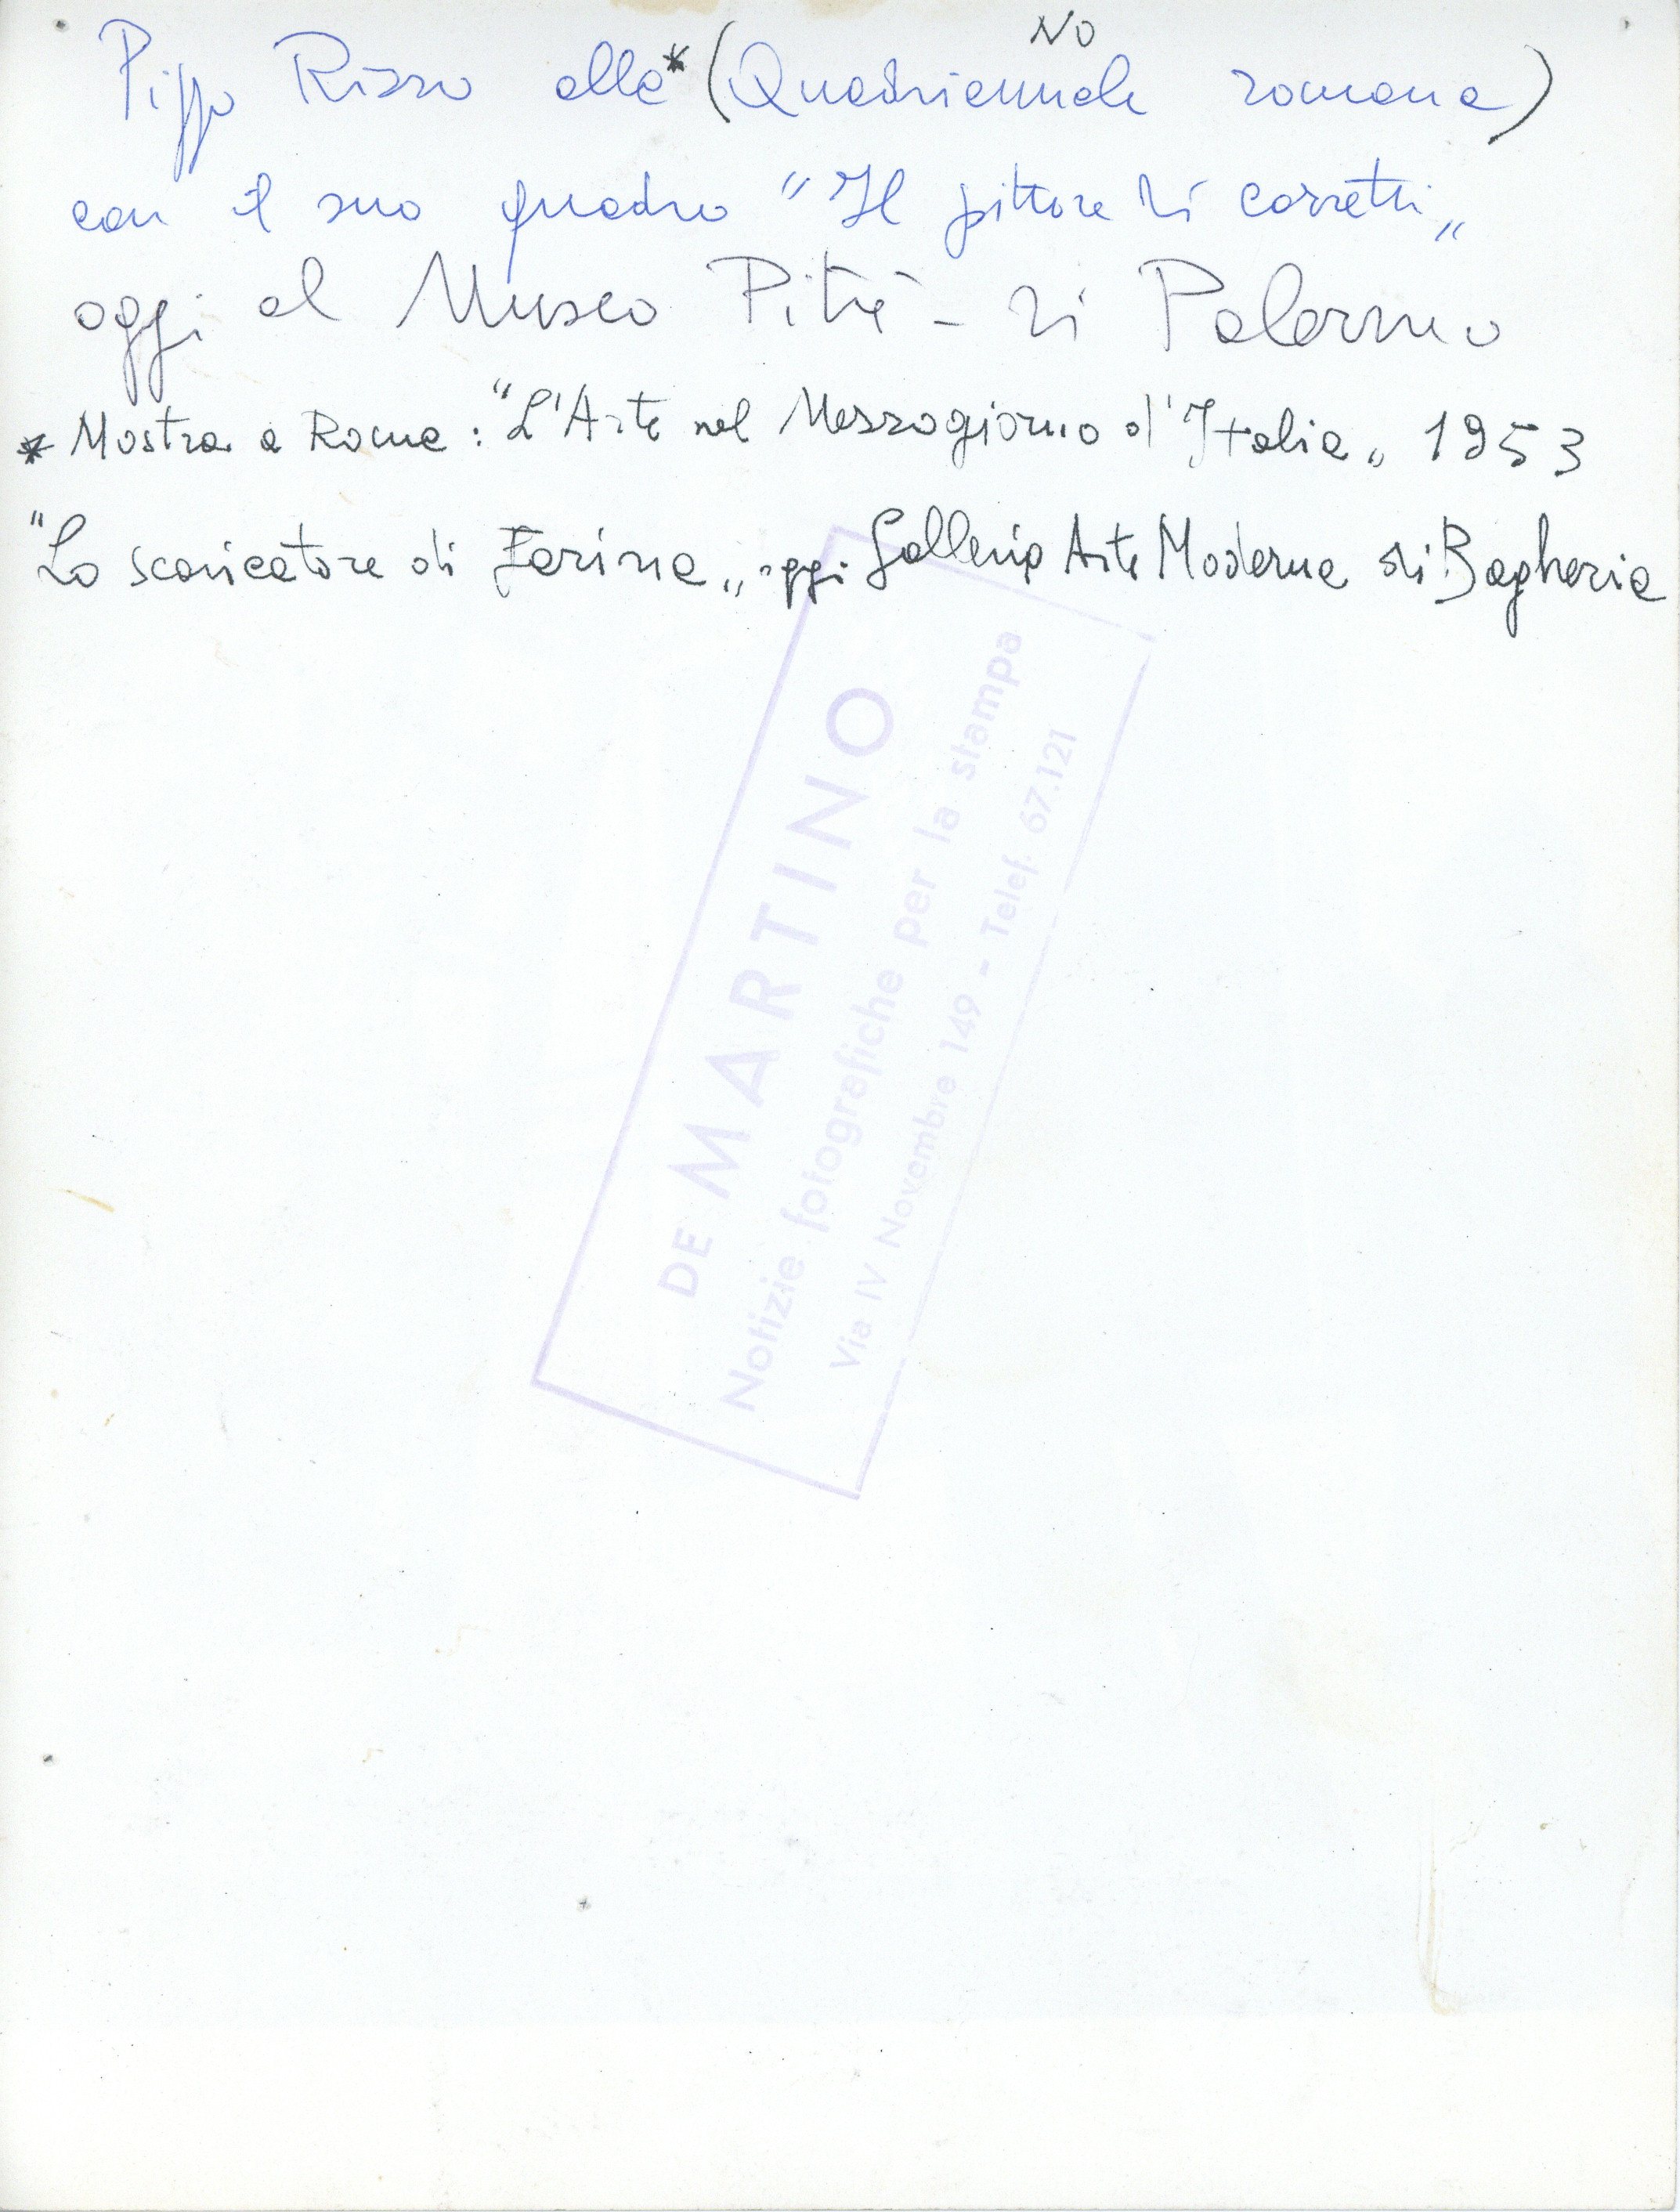 NO
Pippo Rizzo alla* (Quadriennale romana)
con il suo quadro "Il pittore di carretti"
oggi al Museo Pitrè - di Palermo
* Mostra a Roma: "L'Arte nel Mezzogiorno d'Italia" 1953
"Lo scaricatore di Farina" oggi Galleria Arte Moderna di Bagheria
DE MARTINO
Notizie fotografiche per la stampa
Via IV Novembre 149 - Telef. 67.121